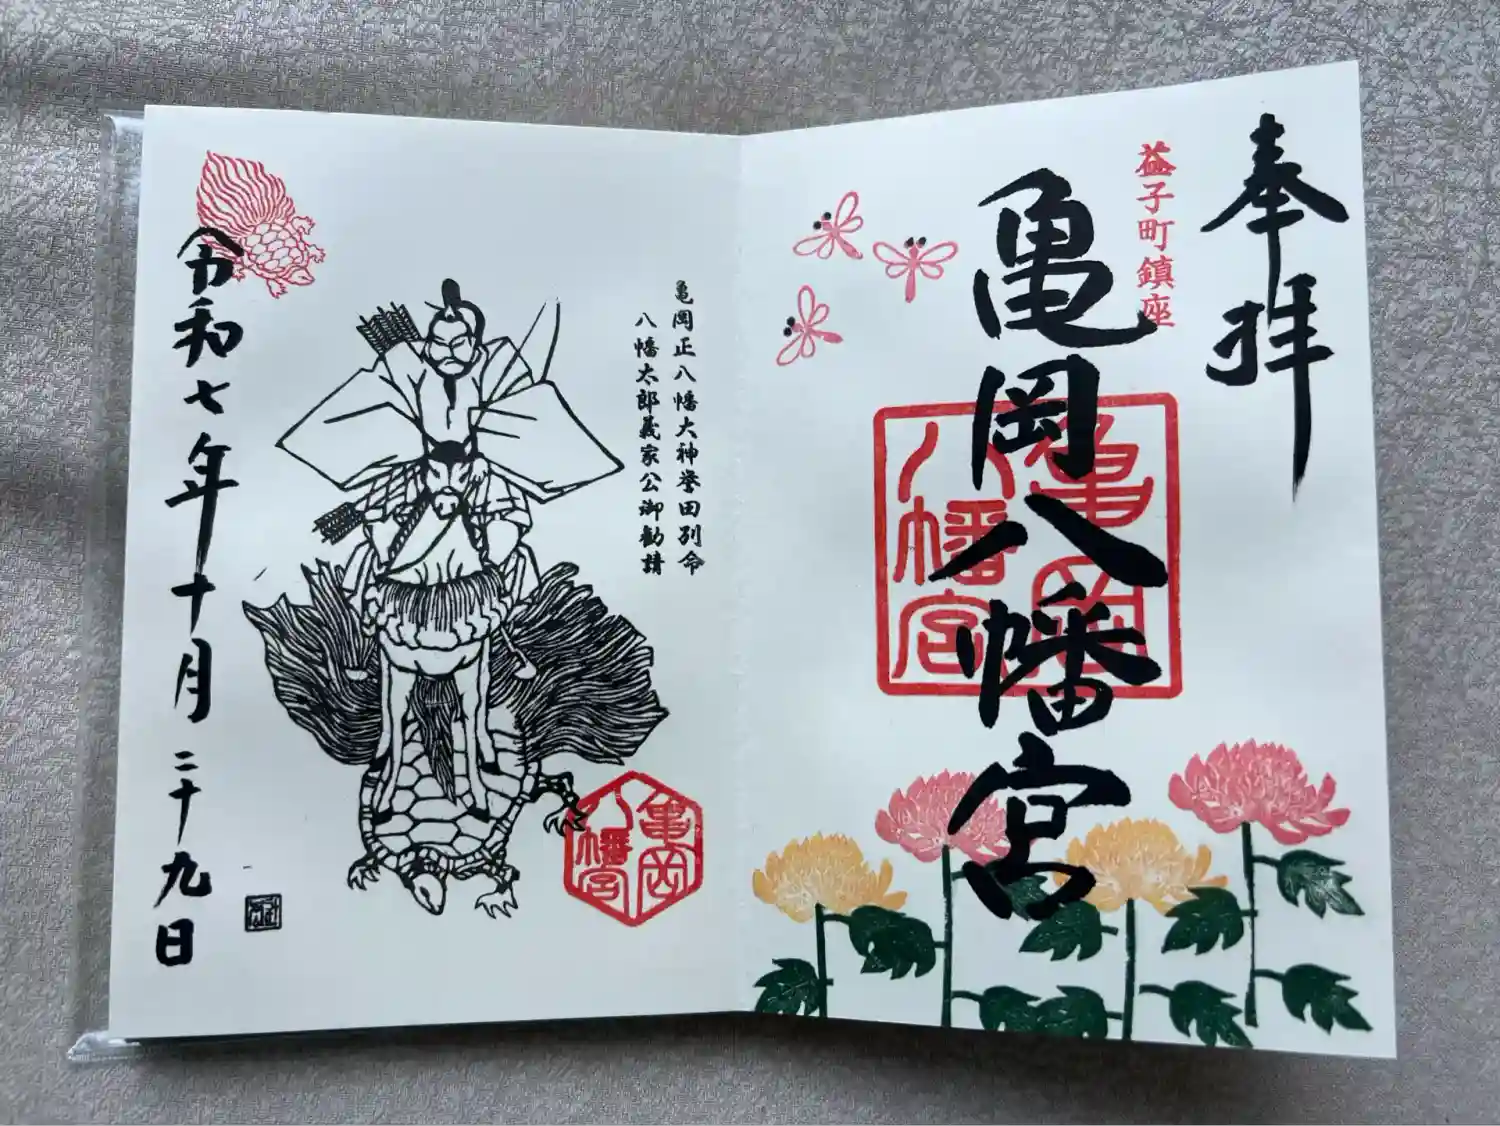 奉拝
益子町鎮座
亀岡八幡宮
亀岡八幡宮
亀岡正八幡大神誉田別命
八幡太郎義家公御勧請
亀岡八幡宮
令和七年十月二十九日